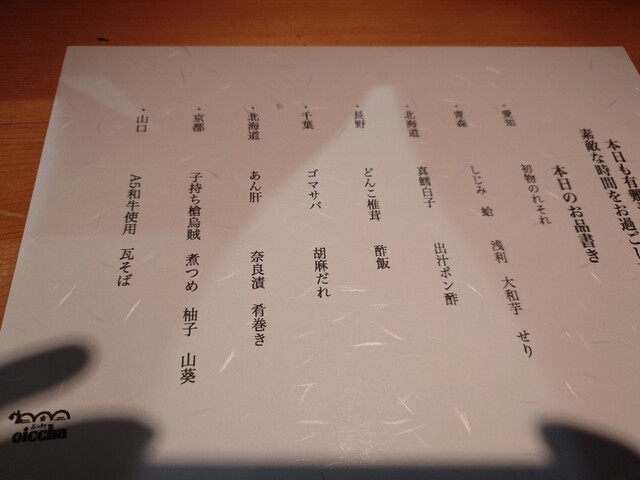 本日も有
素敵な時間をお過ごし
本日のお品書き
・愛知 初物のれそれ
・青森 しじみ 蛤 浅利 大和芋 せり
・北海道 真鱈白子 出汁ポン酢
・長野 どんこ椎茸 酢飯
・千葉 ゴマサバ 胡麻だれ
・北海道 あん肝 奈良漬 肴巻き
・京都 子持ち槍烏賊 煮つめ 柚子 山葵
・山口 A5和牛使用 瓦そば
oiccha